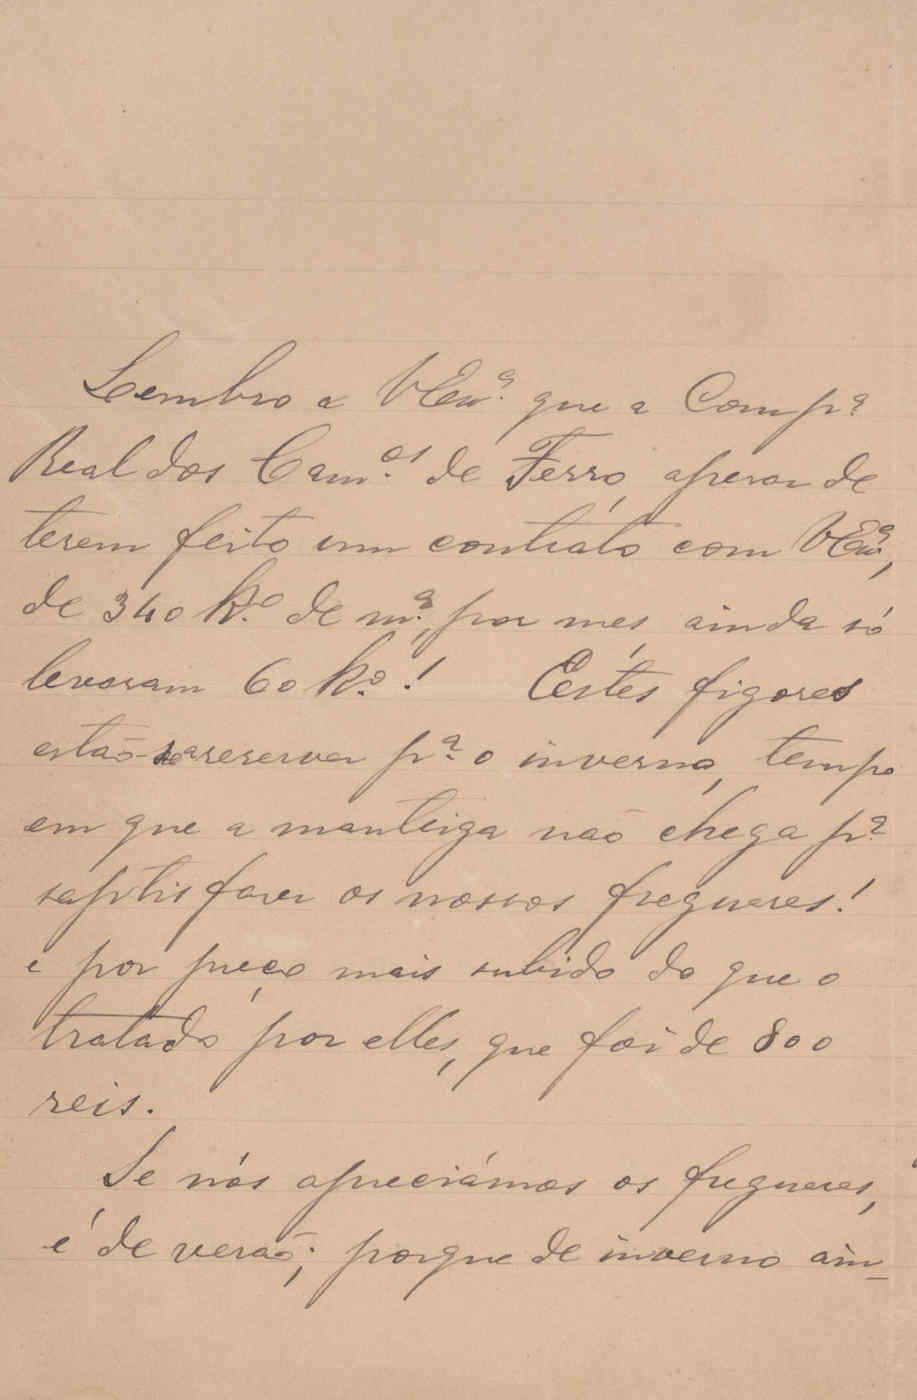 Lembro a VExª. que a Compª
Real dos Cam.os de Ferro, apezar de
terem feito um contrato com VExª.,
de 340 K.º de m.ª, por mes, ainda só
levaram 60 K.º.! Éstes figores
estão-se a reservar pª. o inverno, tempo
em que a manteiga não chega pª.
saptisfazer os nossos freguezes!
e por preço mais subido do que o
tratado por elles, que foi de 800
reis.
Se nós apreciámos os freguezes,
é de verão; porque de inverno ain-